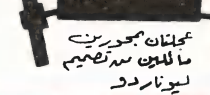 عجلتان بمحورين
مائلين من تصميم
ليوناردو